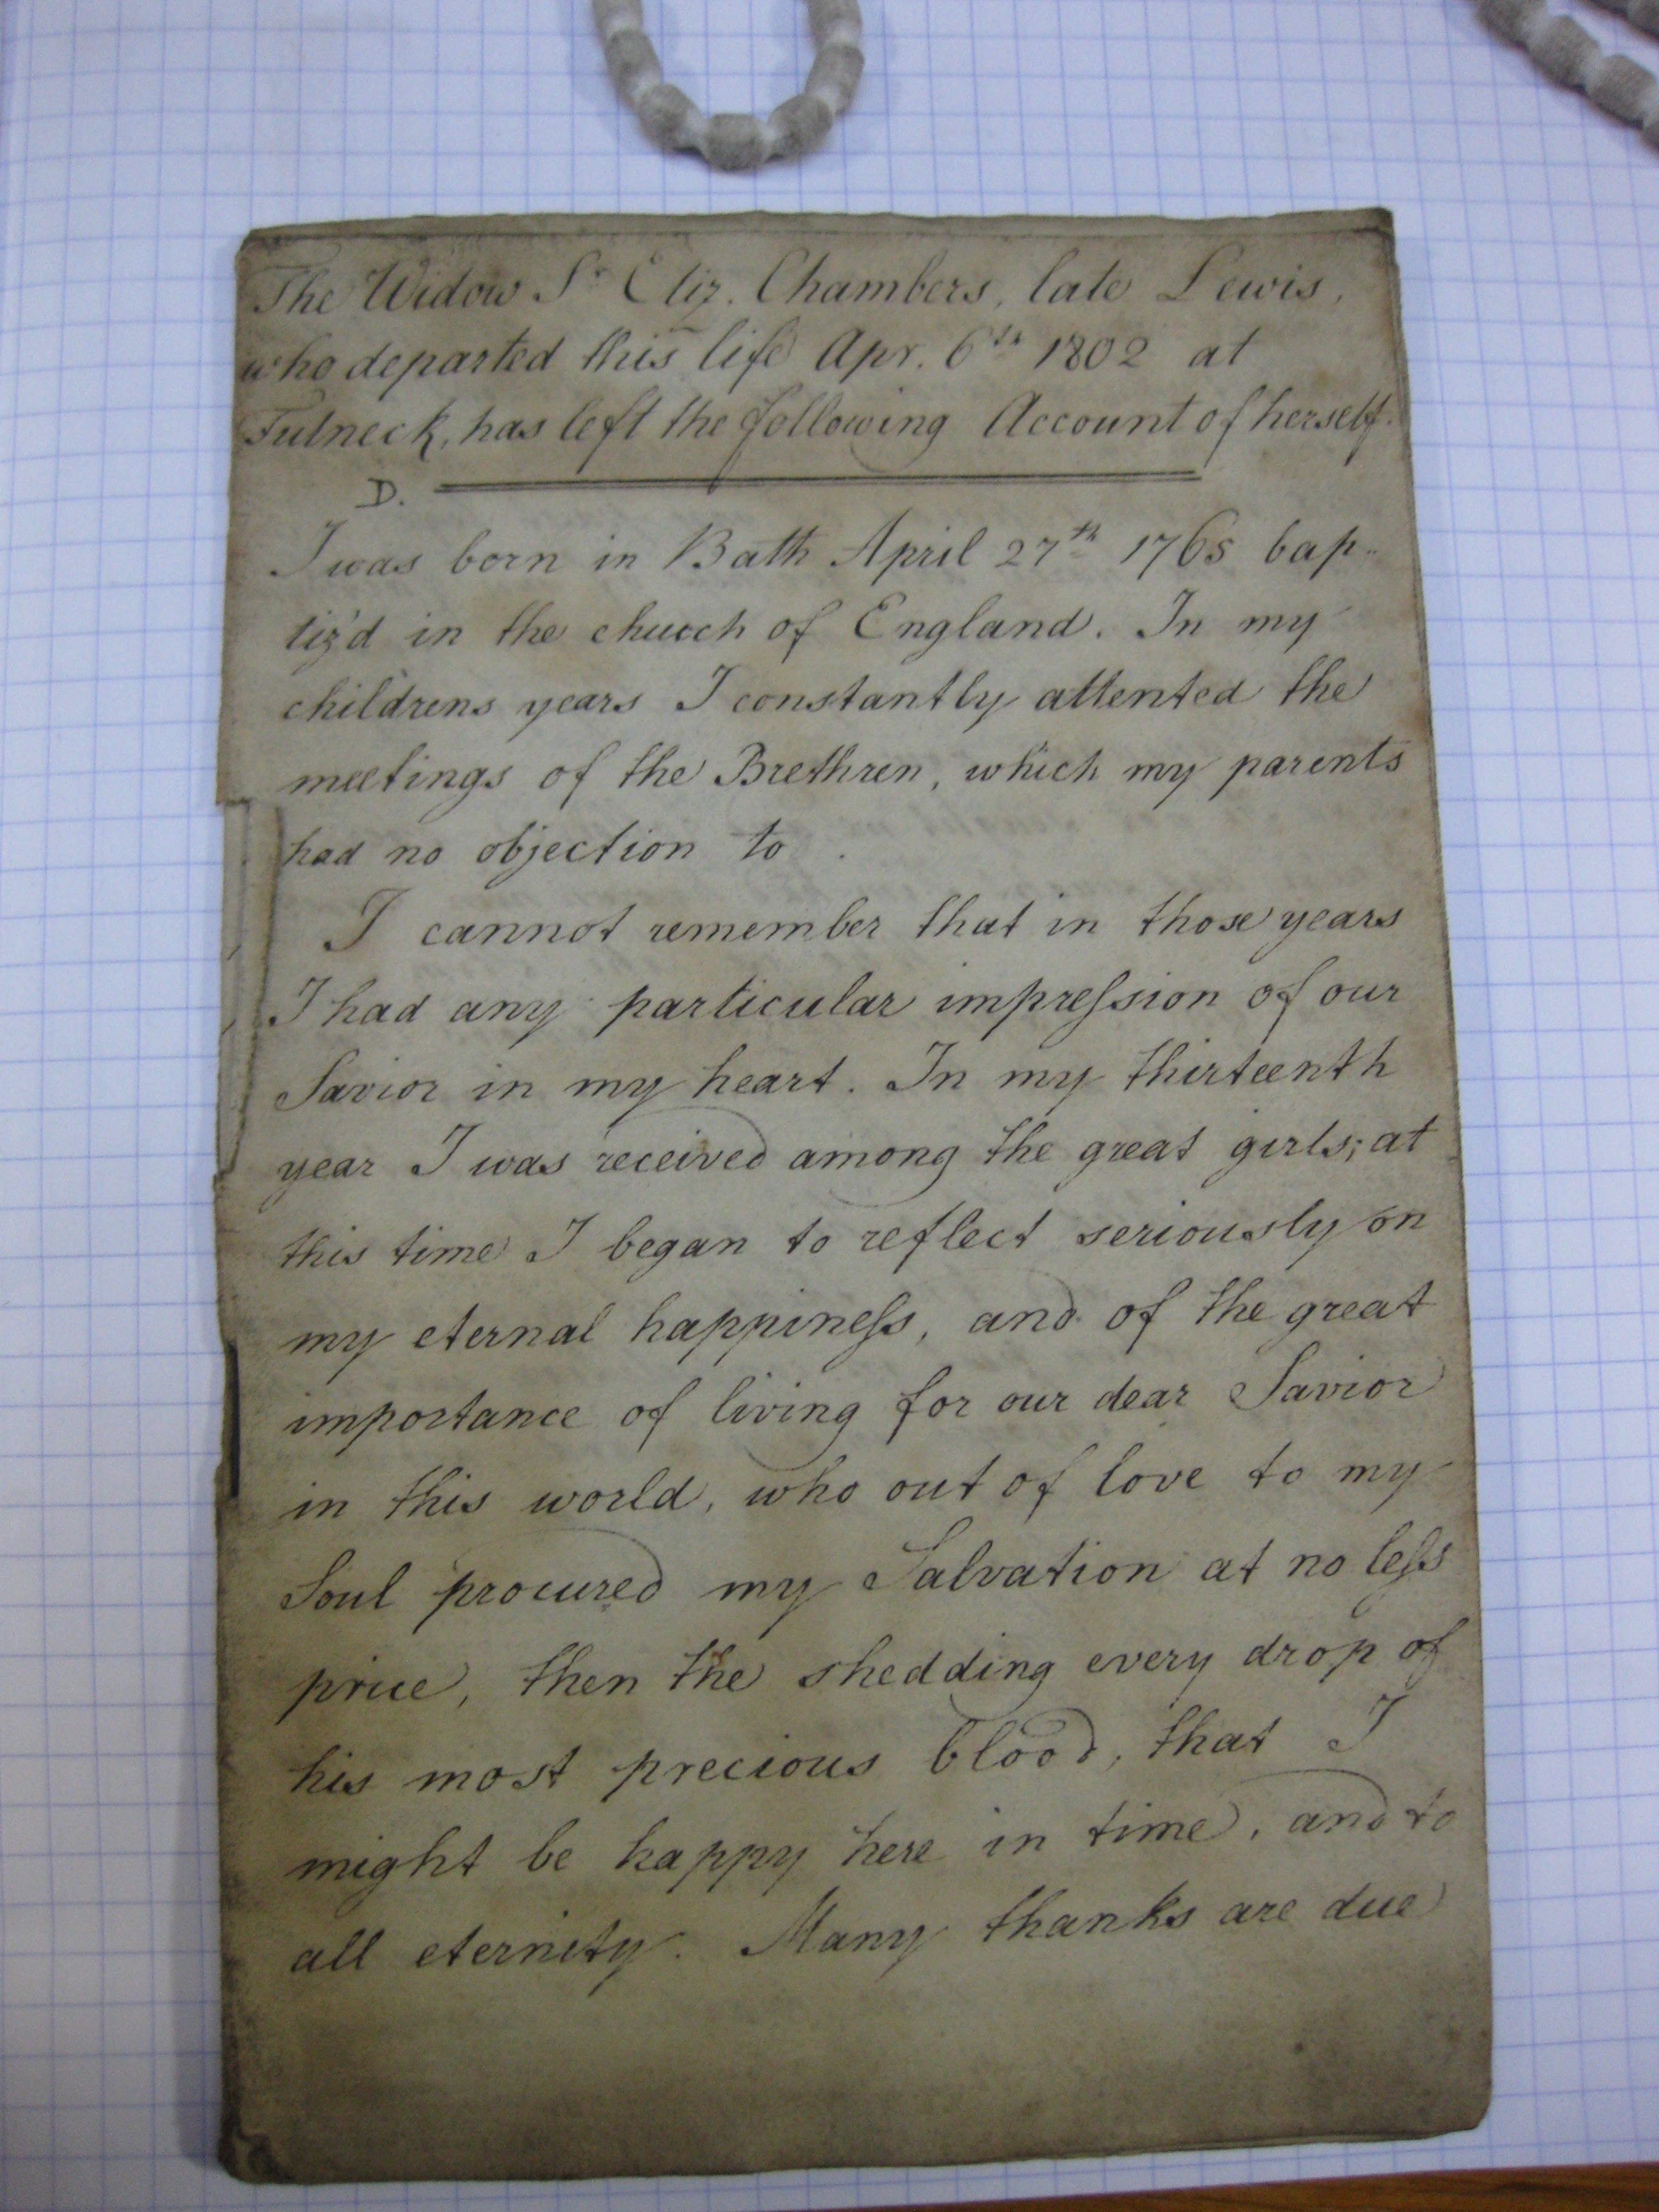 The Widow Sr. Eliz. Chambers, late Lewis,
who departed this life Apr. 6th 1802 at
Fulneck, has left the following Account of herself.
D.
I was born in Bath April 27th 1765 bap-
tiz'd in the church of England. In my
childrens years I constantly attented the
meetings of the Brethren, which my parents
had no objection to.
I cannot remember that in those years
I had any particular impreſsion of our
Savior in my heart. In my thirteenth
year I was received among the great girls; at
this time I began to reflect seriously on
my eternal happineſs, and of the great
importance of living for our dear Savior
in this world, who out of love to my
Soul procured my Salvation at no leſs
price, then the shedding every drop of
his most precious blood, that I
might be happy here in time, and to
all eternity. Many thanks are due